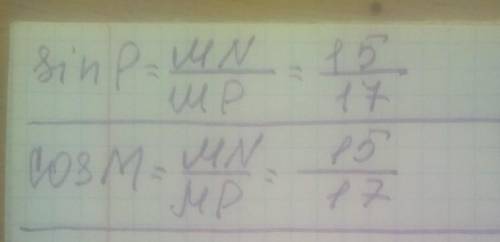 sin P = MN/MP = 15/17
cos M = MN/MP = 15/17